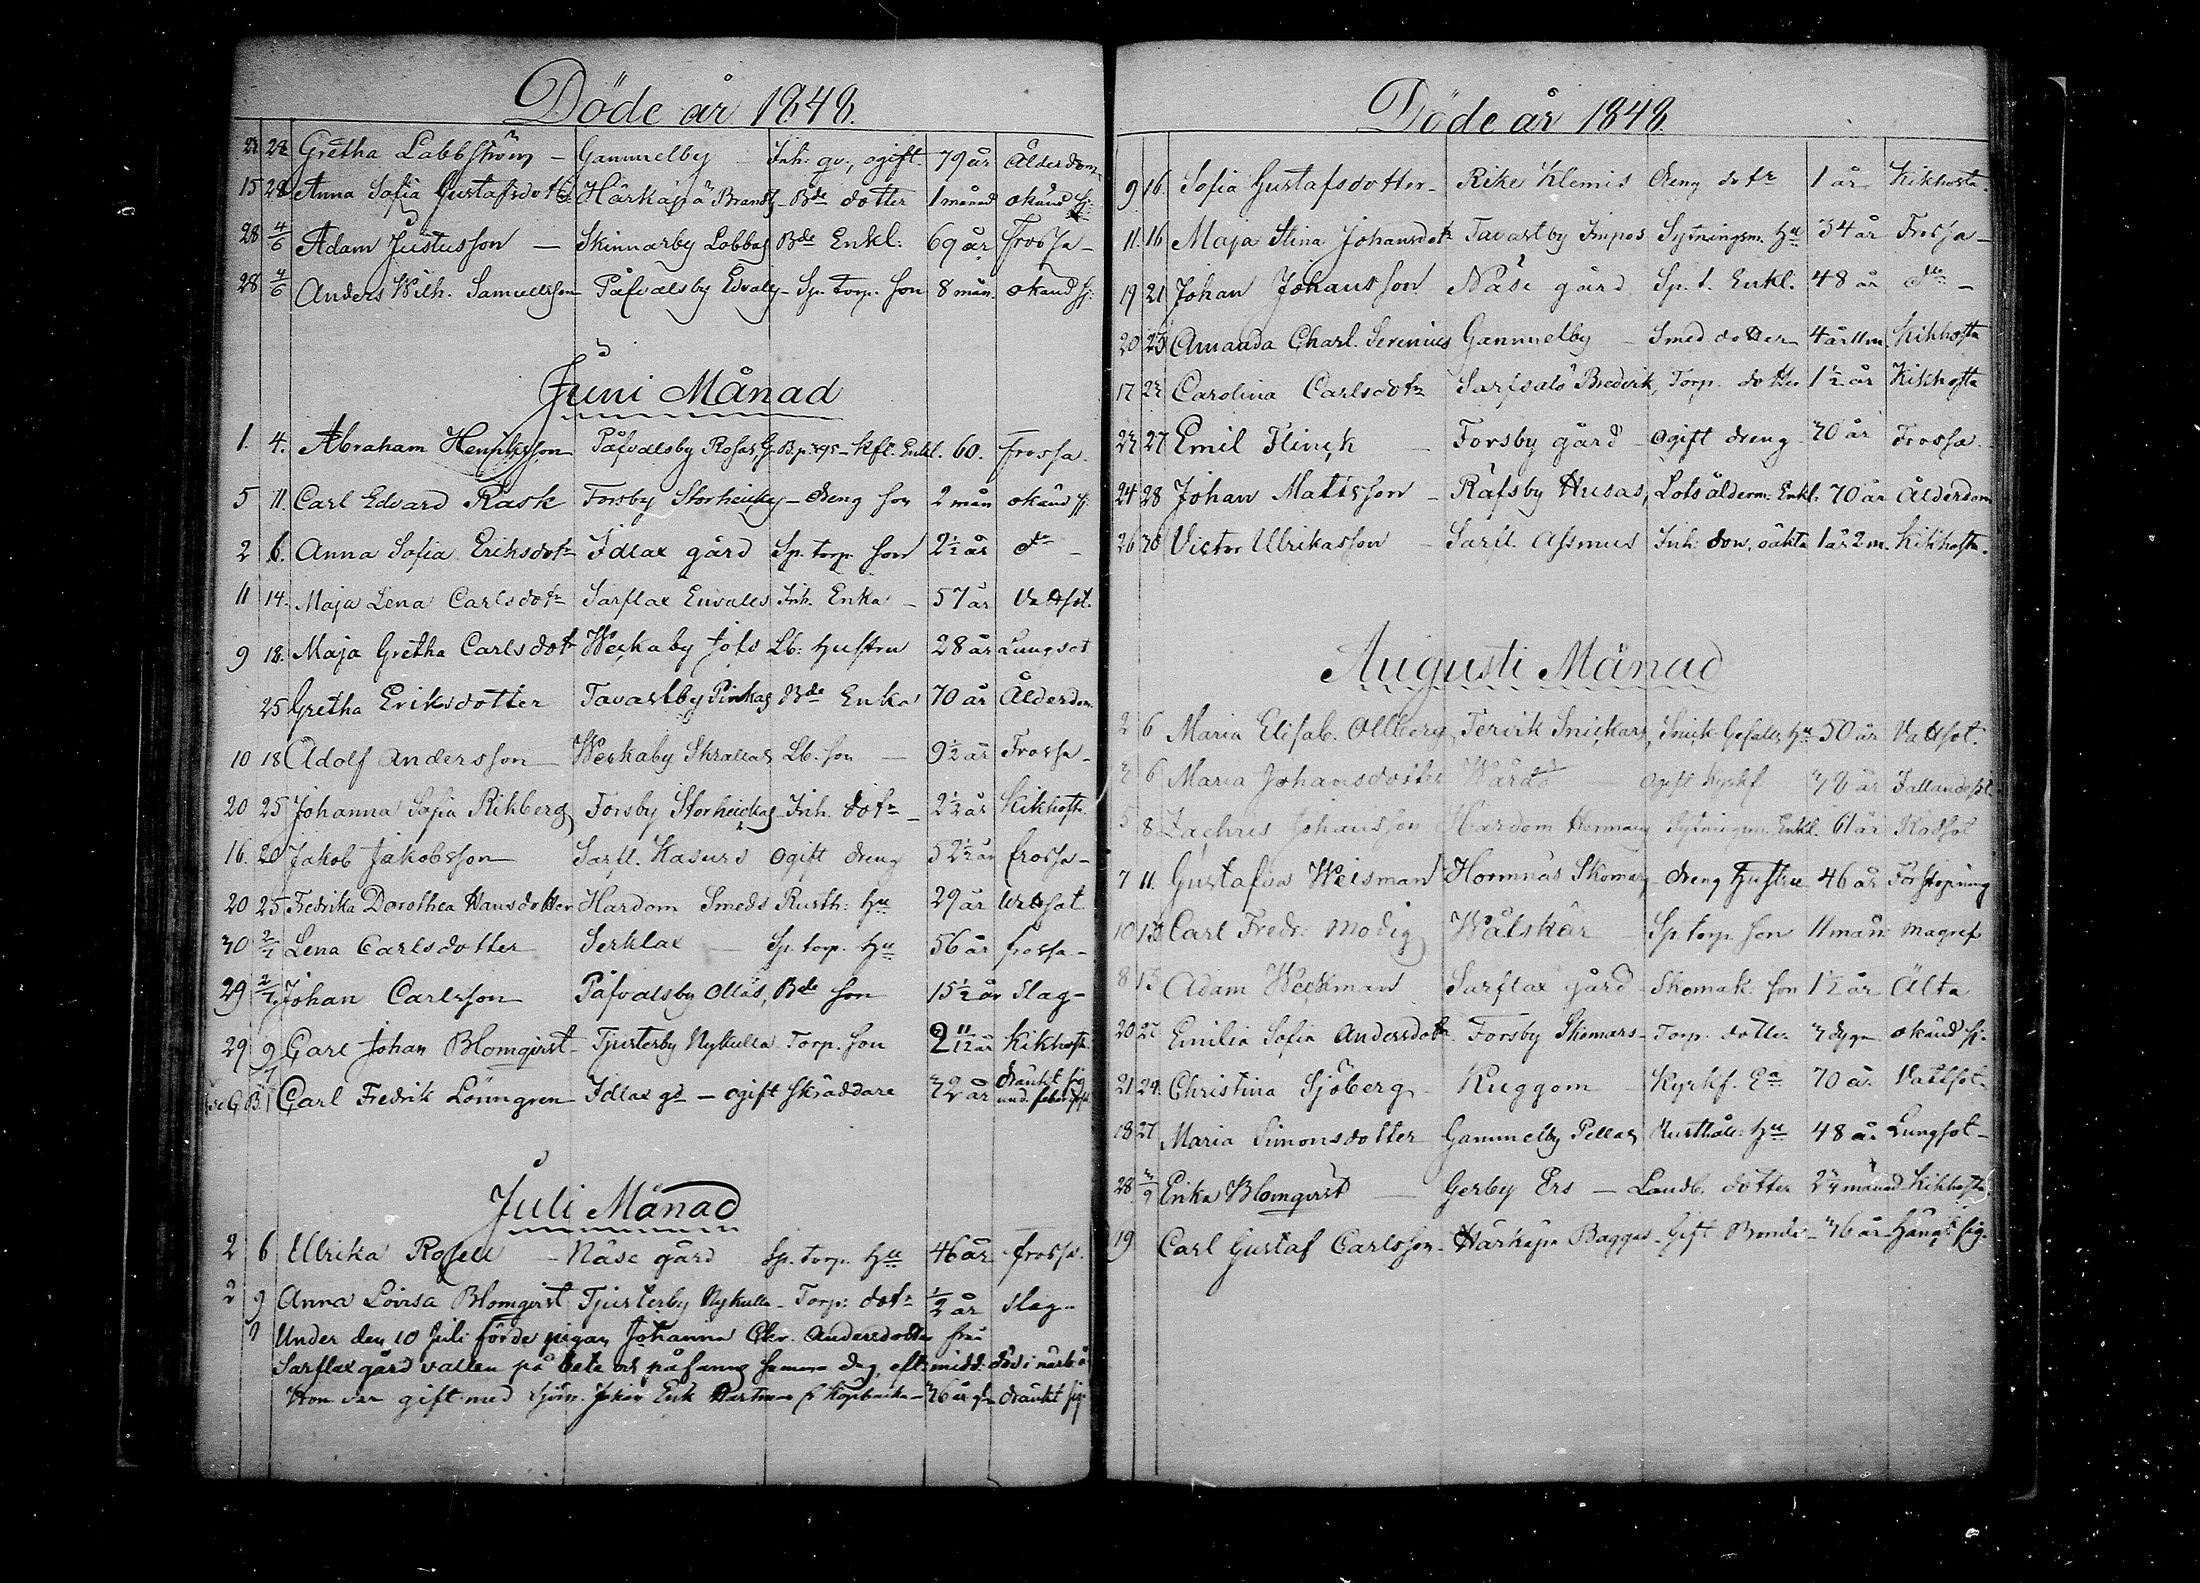 Döde år 1848.
22 28 Gretha Labbström – Gammelby Inh: qv:, ogift 79 år Ålderdom
15 28 Anna Sofia Gustafsdotter Härkäpä Brands Bde dotter 1 månad okänd sj:
28 4/6 Adam Justusson – Skinnarby Lobbas Bde Enkl: 69 år Frossa –
28 4/6 Anders Wilh. Samuelsson Påfvalsby Edvals Sp. torp. son 8 mån. okänd sj:
Juni Månad
1. 4. Abraham Henriksson Påfvalsby Rosas, kfl. Enkl. 60. frossa.
5 11. Carl Edvard Rask Forsby Storheickas – dreng son 2 mån okänd sj.
2 6. Anna Sofia Eriksdotr Idlax gård Sp. torp. son 2 1/2 år do –
11 14. Maja Lena Carlsdotr Sarflax Envalls Inh. Enka – 57 år Vattsot.
9 18. Maja Gretha Carlsdotr Weckaby Jofs Lb: hustru 28 år Lungsot
25 Gretha Eriksdotter Tavastby Pirkas Bde Enka 70 år Ålderdom
10 18 Adolf Andersson – Weckaby Skrallas Lb. son – 9 1/2 år Frossa –
20 25 Johanna Sofia Rihberg Forsby Storheickas Inh. dotr – 2 1/2 år Kikhosta
16. 20 Jakob Jakobsson Sarfl. Kasurs ogift dreng 52 1/2 år frossa –
20 25 Fredrika Dorothea Hansdotter Hardom Smeds Rusth: Hu 29 år Vattsot
30 2/7 Lena Carlsdotter Serklax – Sp. torp. Hu 56 år frossa –
29 2/7 Johan Carlsson Påfvalsby Ollas, Bde son 15 1/2 år Slag –
29 9/7 Carl Johan Blomqvist – Tjusterby Nykulla Torp. son 2 11/12 år Kikhosta
Carl Fredrik Lönngren – Idlax gd – ogift skräddare 32 år dränkt sig und.
Juli Månad
2 6 Ulrika Rosell – Näse gård Sp. torp. Hu 46 år frossa.
2 9 Anna Lovisa Blomqvist Tjusterby Nykulla – Torp: dotr 1/2 år Slag –
Under den 10 Juli förde pigan Johanna Andersdotter från
Sarflax gård vallen på bete och påfanns samma dag eft: midd: död i
Hon var gift med Johan Erik Hartman 36 år dränkt sig
Döde år 1848.
9 16. Sofia Gustafsdotter – Rike Klemis dreng dotr 1 år Kikhosta.
11. 16 Maja Stina Johansdotr Tavastby Impos Sytningsm. Hu 34 år Frossa –
19 21 Johan Johansson Näse gård Sp. t. Enkl. 48 år do –
20 23 Amanda Charl. Serenius Gammelby – Smed dotter 4 år 11 m. Kikhosta
17 23 Carolina Carlsdotr Sarfsalö Bredvik, Torp. dotter 1 1/2 år Kikhosta
23 27 Emil Flinck – Forsby gård – ogift dreng 30 år Frossa.
24 28 Johan Matisson – Räfsby Husas, Lotsålderm: Enkl. 70 år Ålderdom
26 30 Victor Ulrikasson – Sarfl. Assmus Inh: son, oäkta 1 år 2 m. Kikhosta.
Augusti Månad
2 6 Maria Elisab. Ollberg, Tervik Snickars, Snick. Gesälls Hu 50 år Vattsot.
3 6 Maria Johansdotter Wård – ogift Kyrkf 78 år Fallandesot
5 8 Zachris Johansson Hardom Hermans Sytningsm. Enkl. 61 år Rödsot
7 11. Gustafva Weisman Hommnäs Skomars – dreng hustru 46 år Förstoppning
10 13 Carl Fredr: Modig Wåtskär – Sp. torp. son 11 mån: Magref
8 13 Adam Weckman Sarflax gård – Skomak. son 1 1/2 år Älta
20 27 Emilia Sofia Andersdotr Forsby Skomars – Torp. dotter 3 dygn okänd sj.
21 24. Christina Sjöberg – Kuggom – Kyrkf. Ea 70 år Vattsot
18 27 Maria Simonsdotter Gammelby Pellas Rusthåll: Hu 48 år Lungsot –
28 3/9 Erika Blomqvist – Gerby Ers – Landb. dotter 2 3/4 månad Kikhosta
19 Carl Gustaf Carlsson – Härkäpä Baggas – Gift Bonde – 36 år Hängt sig.